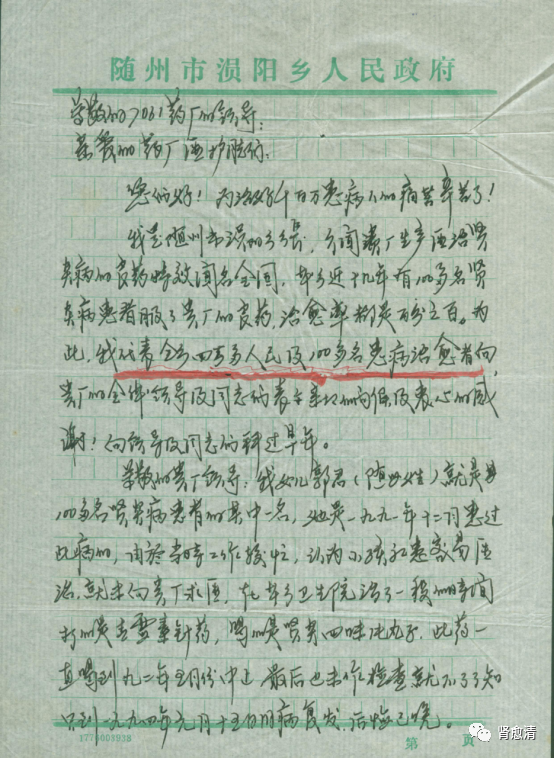 随州市涢阳乡人民政府
尊敬的7061药厂的领导:
亲爱的药厂医护人员们:
您们好!为治好千百万患病人的病苦辛苦了!
我是随州市涢阳乡乡长,乡闻贵厂生产医治肾
炎病的良药特效闻名全国,本乡近十几年有100多名肾
炎病患者服了贵厂的良药,治愈率都是百分之百。为
此,我代表全乡四万多人民及100多名患病治愈者向
贵厂的全体领导及同志们表示亲切的问候及衷心的感
谢!向领导及同志们拜过早年。
尊敬的贵厂领导:我女儿郭君(随母姓)就是其
100多名肾炎病患者的其中一名,她是一九九一年十二月患过
此病的,由於当时工作较忙,认为小孩初患容易医
治,就未向贵厂求医,在本乡卫生院治了一段时间
打的是青霉素针药,喝的是肾炎四味片丸子,此药一
直喝到九二年五月份中止,最后也未作检查就不了了知
只到一九九四年元月十五日旧病复发,后悔已晚。
1776003938
第 页
肾愈清